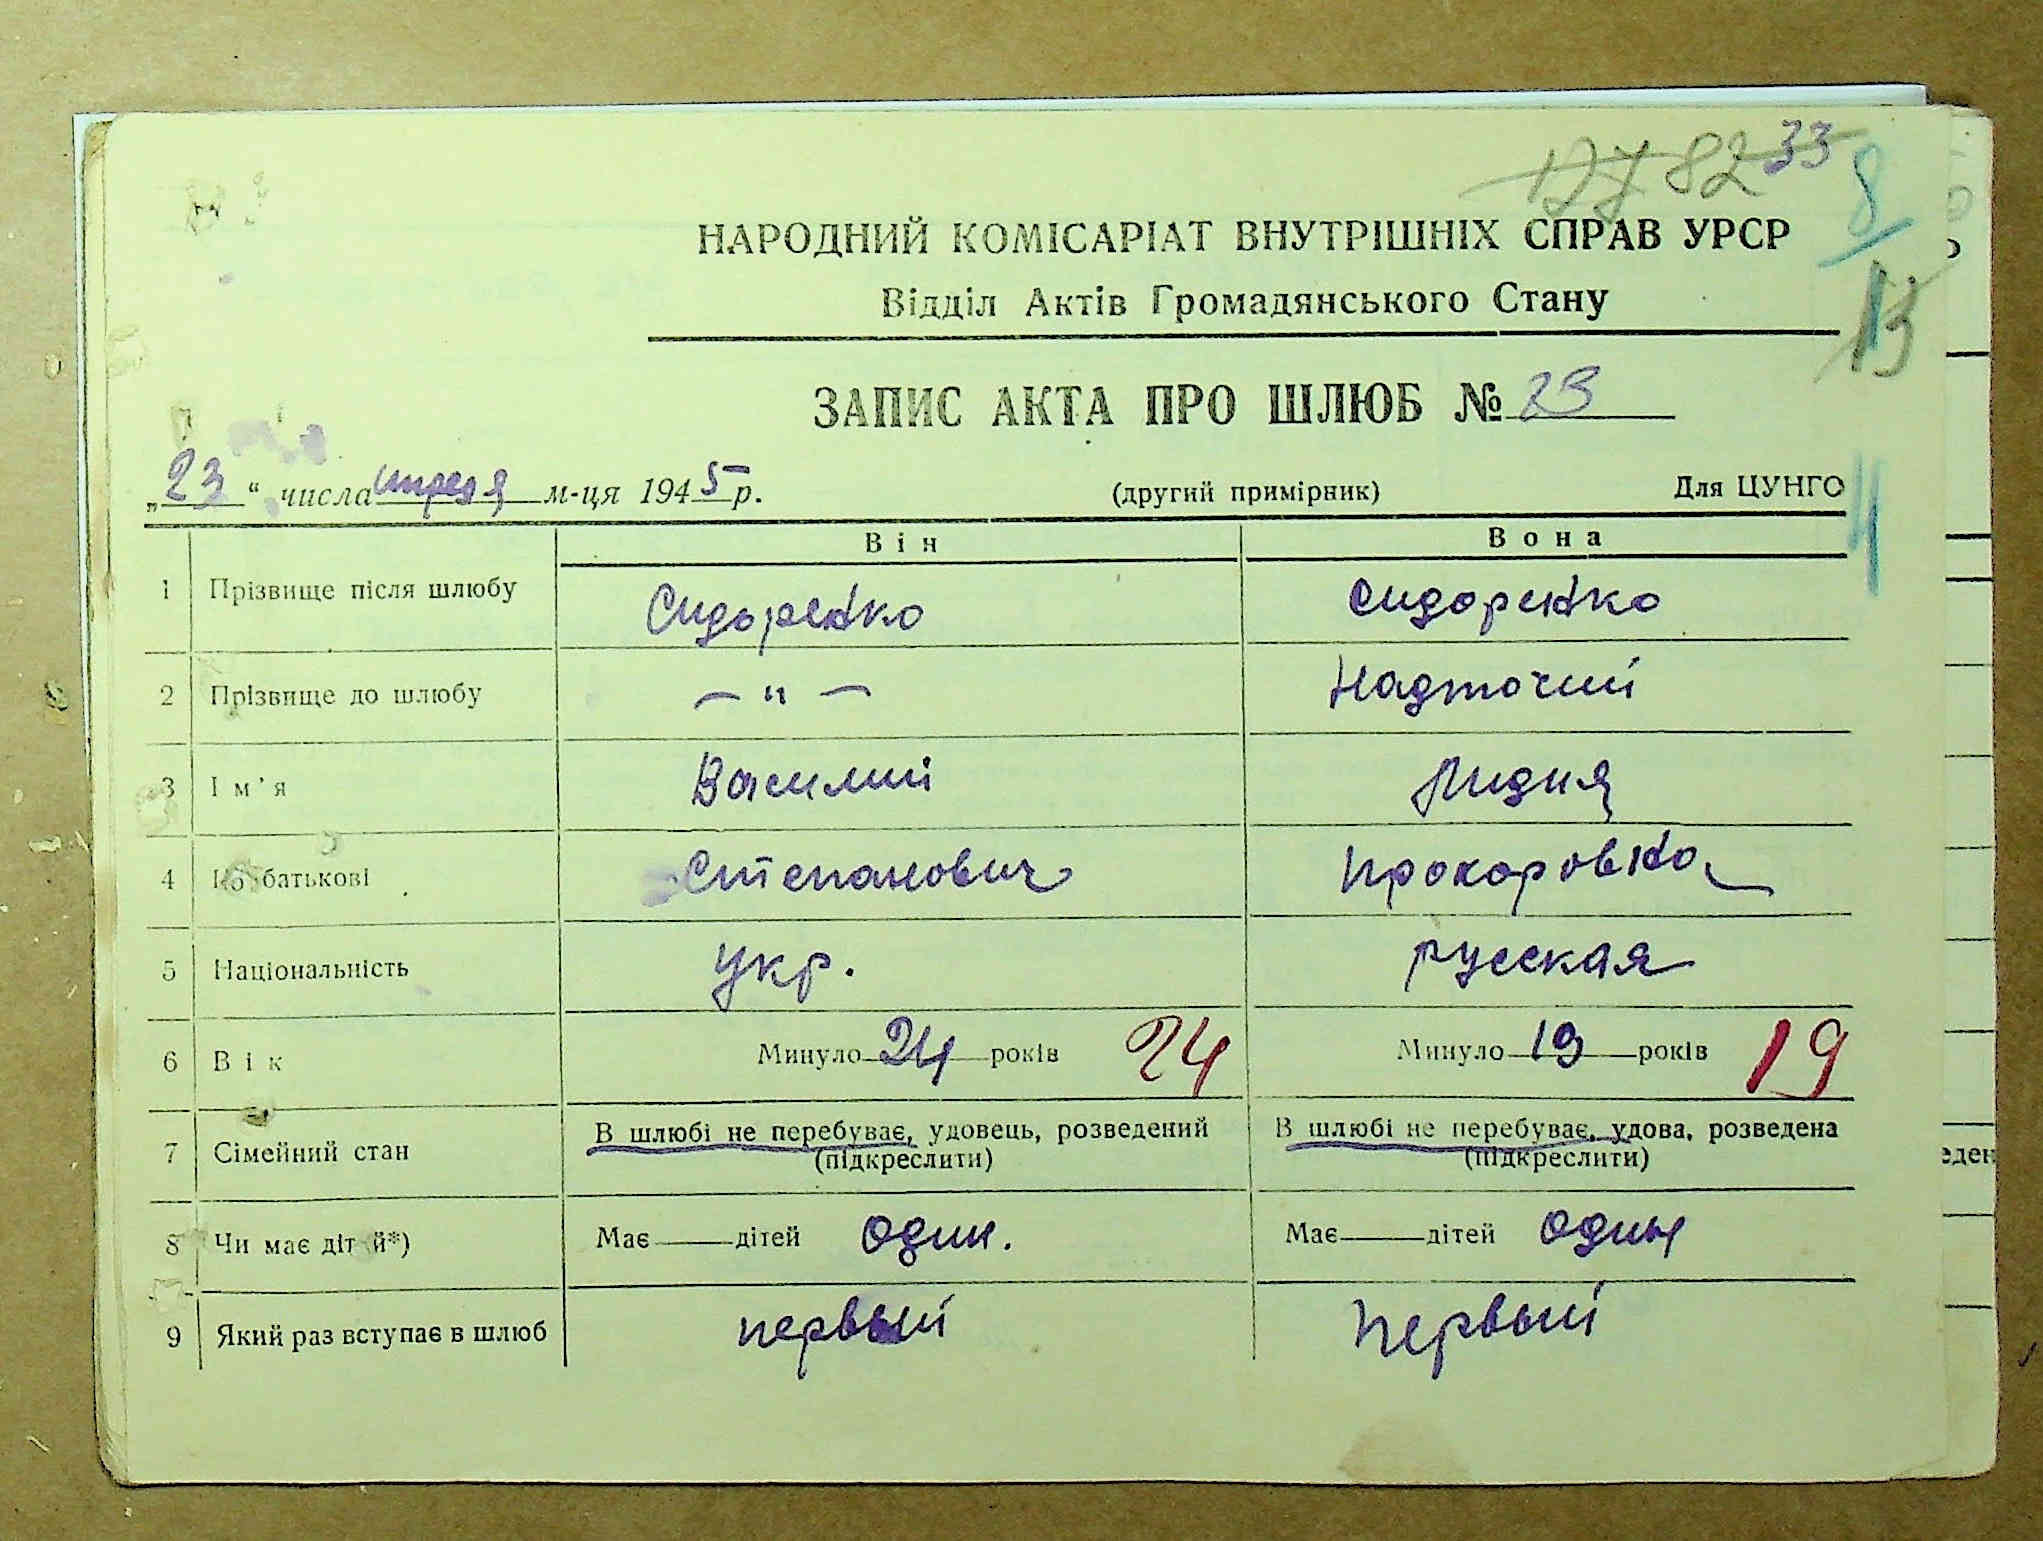 82 33
8
13
НАРОДНИЙ КОМІСАРІАТ ВНУТРІШНІХ СПРАВ УРСР
Відділ Актів Громадянського Стану
ЗАПИС АКТА ПРО ШЛЮБ № 23
„23“ числа апреля м-ця 1945 р. (другий примірник) Для ЦУНГО
Він Вона
1 Прізвище після шлюбу Сидоренко Сидоренко
2 Прізвище до шлюбу — " — Надточий
3 Ім'я Василий Лидия
4 По батькові Степанович Прохоровна
5 Національність укр. русская
6 Вік Минуло 24 років 24 Минуло 19 років 19
7 Сімейний стан В шлюбі не перебуває, удовець, розведений (підкреслити) В шлюбі не перебуває, удова, розведена (підкреслити)
8 Чи має дітей*) Має дітей один. Має дітей один
9 Який раз вступає в шлюб первый первый